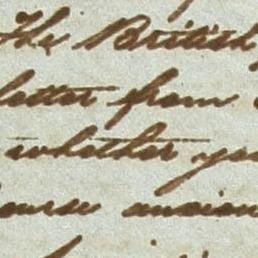 The British
letter from
whether you
anxious